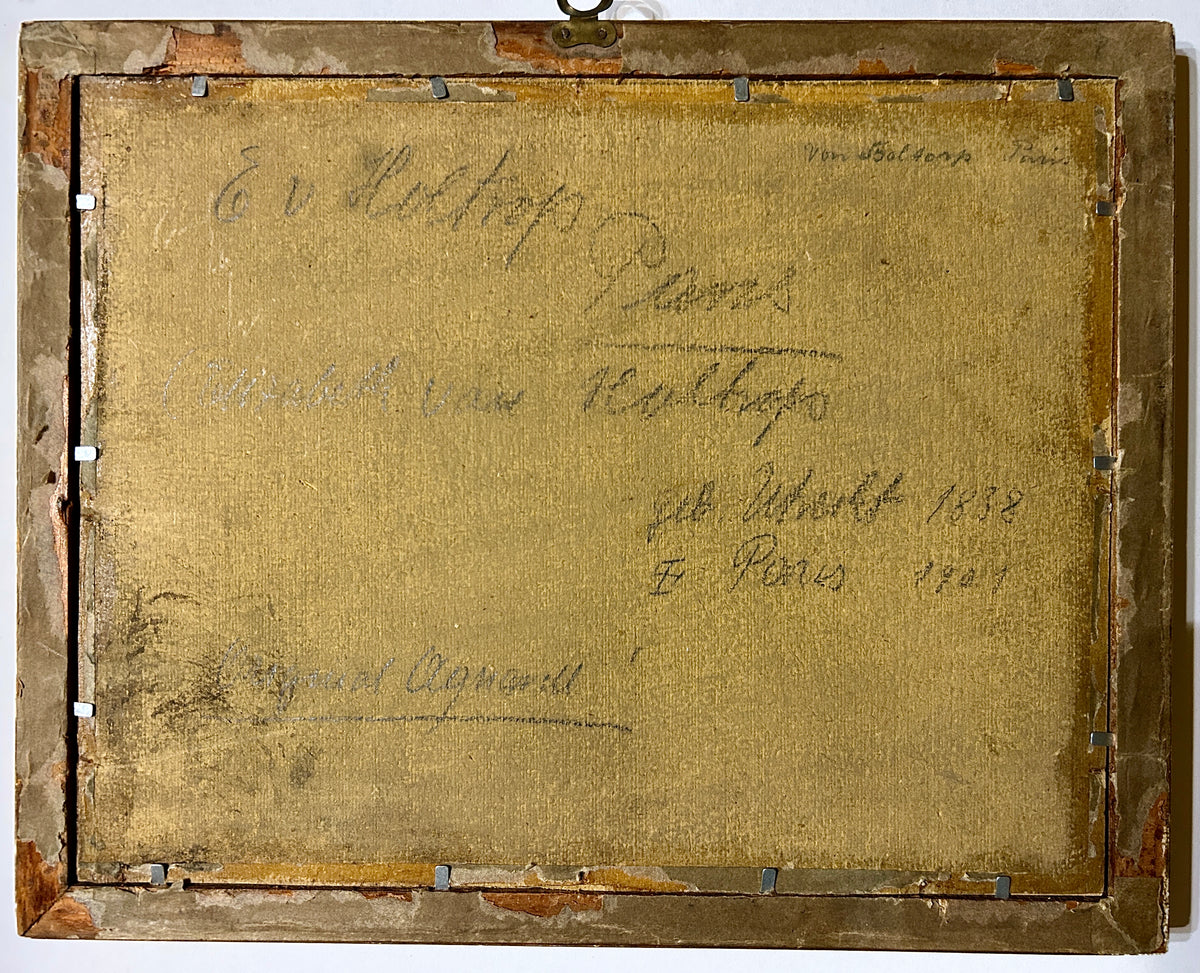 Von Boltorp Paris
E v Holtrop
Paris
(Elisabeth van Holtrop
geb. Utrecht 1838
Paris 1901
Original Aquarell !